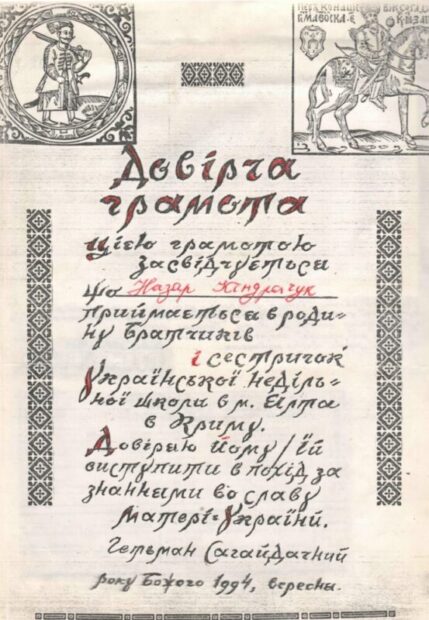 Довірча
грамота
Цією грамотою
засвідчується
що Назар Кіндрачук
приймається в роди-
ну братчиків
і сестричок
Української неділь-
ної школи в м. Ялта
в Криму.
Довіряю йому/їй
виступити в похід за
знаннями во славу
Матері-України.
Гетьман Сагайдачний
року Божого 1994, вересень.